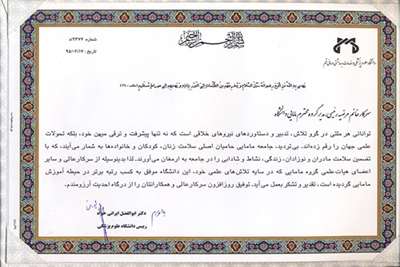 شماره: ۵/۲۳۷۴
تاریخ: ۹۵/۰۲/۱۷
بسم الله الرحمن الرحیم
سرکار خانم مرضیه رئیسی، مدیر گروه محترم مامایی دانشگاه
توانائی هر ملتی در گرو تلاش، تدبیر و دستاوردهای نیروهای خلاقی است که نه تنها پیشرفت و ترقی میهن خود، بلکه تحولات
علمی جهان را رقم زده‌اند. بی‌تردید، جامعه مامایی حامیان اصلی سلامت زنان، کودکان و خانواده‌ها به شمار می‌آیند، که با
تضمین سلامت مادران و نوزادان، زندگی، نشاط و شادابی را در جامعه به ارمغان می‌آورند. لذا بدینوسیله از سرکارعالی و سایر
اعضای هیات‌علمی گروه مامایی که در سایه تلاش‌های علمی خود، این دانشگاه موفق به کسب رتبه برتر در حیطه آموزش
مامایی گردیده است، تقدیر و تشکر بعمل می‌آید. توفیق روزافزون سرکارعالی و همکارانتان را از درگاه احدیت آرزومندم.
دکتر ابوالفضل ایرانی خواه
رییس دانشگاه علوم پزشکی